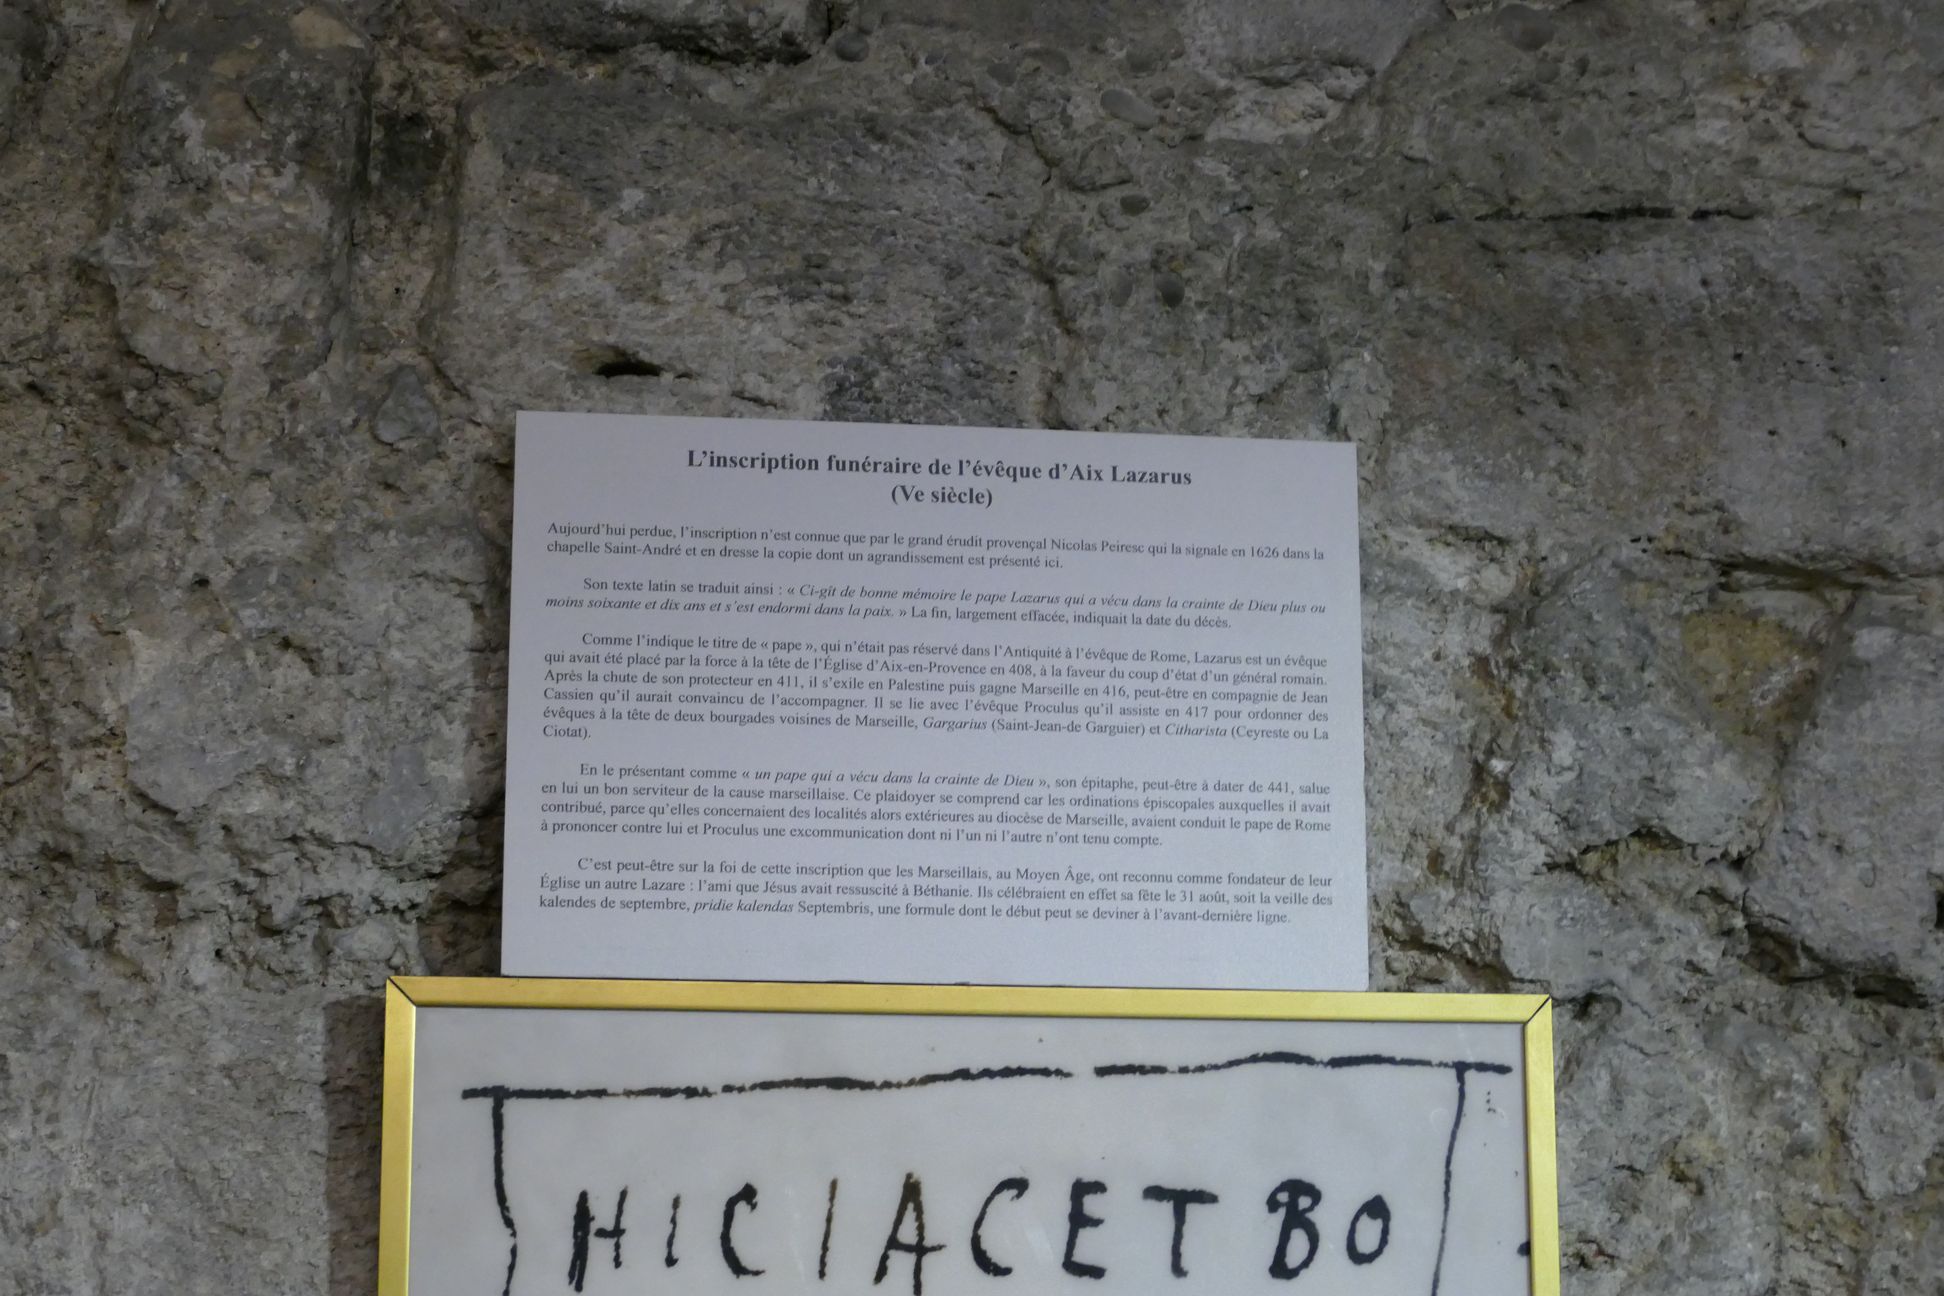 L'inscription funéraire de l'évêque d'Aix Lazarus
(Ve siècle)
Aujourd'hui perdue, l'inscription n'est connue que par le grand érudit provençal Nicolas Peiresc qui la signale en 1626 dans la
chapelle Saint-André et en dresse la copie dont un agrandissement est présenté ici.
Son texte latin se traduit ainsi : « Ci-gît de bonne mémoire le pape Lazarus qui a vécu dans la crainte de Dieu plus ou
moins soixante et dix ans et s'est endormi dans la paix. » La fin, largement effacée, indiquait la date du décès.
Comme l'indique le titre de « pape », qui n'était pas réservé dans l'Antiquité à l'évêque de Rome, Lazarus est un évêque
qui avait été placé par la force à la tête de l'Église d'Aix-en-Provence en 408, à la faveur du coup d'état d'un général romain.
Après la chute de son protecteur en 411, il s'exile en Palestine puis gagne Marseille en 416, peut-être en compagnie de Jean
Cassien qu'il aurait convaincu de l'accompagner. Il se lie avec l'évêque Proculus qu'il assiste en 417 pour ordonner des
évêques à la tête de deux bourgades voisines de Marseille, Gargarius (Saint-Jean-de Garguier) et Citharista (Ceyreste ou La
Ciotat).
En le présentant comme « un pape qui a vécu dans la crainte de Dieu », son épitaphe, peut-être à dater de 441, salue
en lui un bon serviteur de la cause marseillaise. Ce plaidoyer se comprend car les ordinations épiscopales auxquelles il avait
contribué, parce qu'elles concernaient des localités alors extérieures au diocèse de Marseille, avaient conduit le pape de Rome
à prononcer contre lui et Proculus une excommunication dont ni l'un ni l'autre n'ont tenu compte.
C'est peut-être sur la foi de cette inscription que les Marseillais, au Moyen Âge, ont reconnu comme fondateur de leur
Église un autre Lazare : l'ami que Jésus avait ressuscité à Béthanie. Ils célébraient en effet sa fête le 31 août, soit la veille des
kalendes de septembre, pridie kalendas Septembris, une formule dont le début peut se deviner à l'avant-dernière ligne.
HICIACETBO